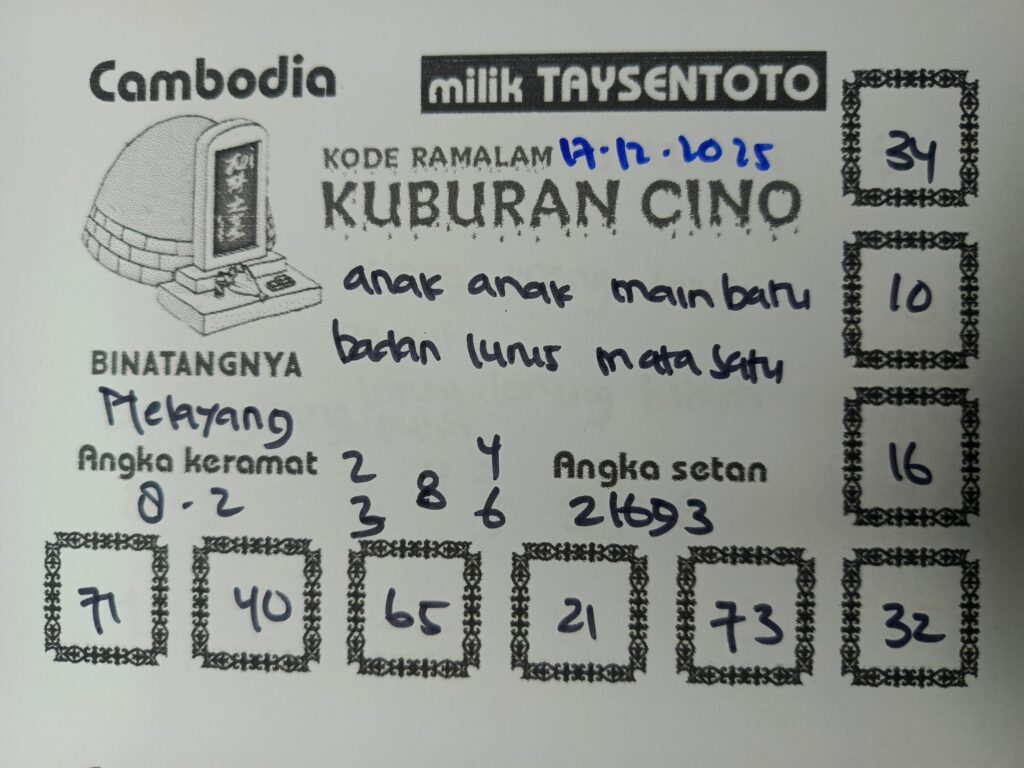 Cambodia
milik TAYSENTOTO
KODE RAMALAM 17.12.2025
KUBURAN CINO
anak anak main batu
badan lurus mata satu
BINATANGNYA
Melayang
Angka keramat
8.2
2 4
8
3 6
Angka setan
21693
34
10
16
71 40 65 21 73 32